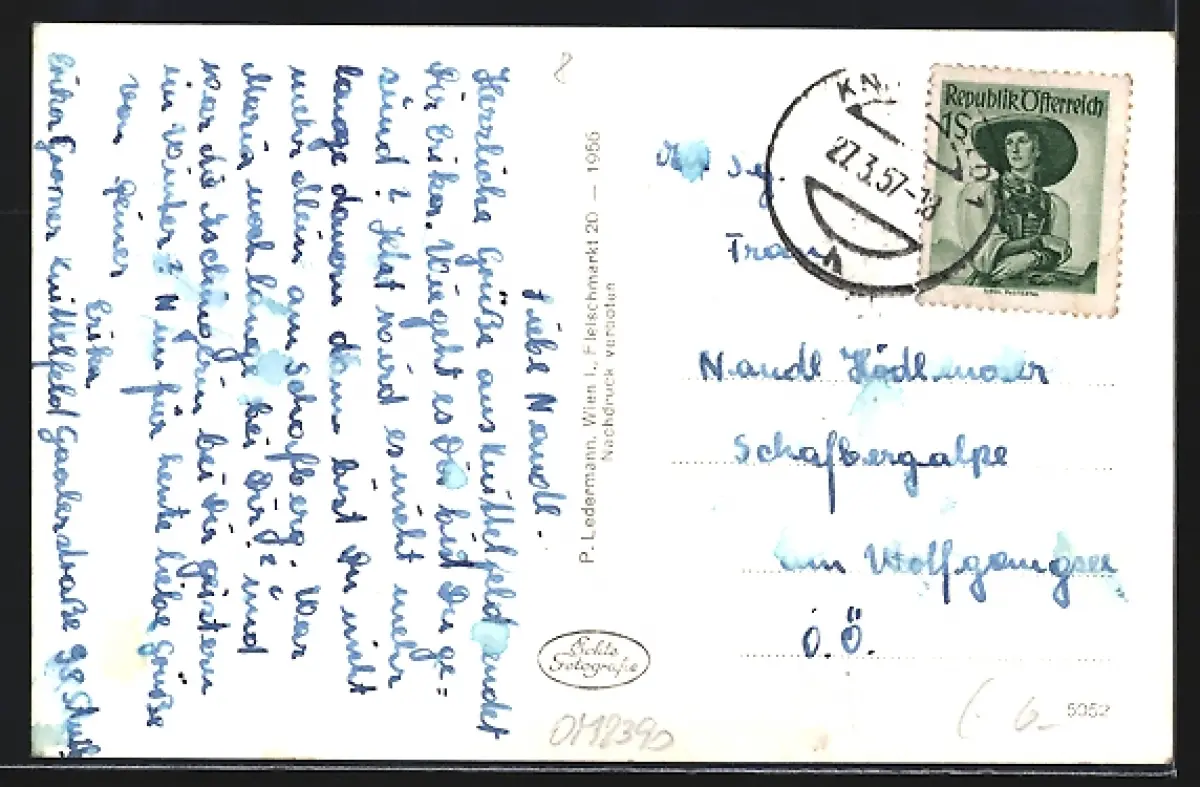 Liebe Nandl.
Herrliche Grüße aus Knittelfeld sendet
Dir Erika. Wie geht es Dir bist Du ge=
sund? Jetzt wird es nicht mehr
lange dauern dann bist Du nicht
mehr allein am Schafberg. War
Maria noch lange bei Dir? und
war die bei Dir gestern
im Winter? Nun für heute liebe Grüße
von Deiner
Erika
Erika Knittelfeld Gaalerstraße 98 Stmk
P. Ledermann, Wien I., Fleischmarkt 20 — 1956
Nachdruck verboten
Echte
Fotografie
OM2390
27.3.57-18
Republik Österreich
1S
Frau
Nandl Hödlmoser
Schafbergalpe
am Wolfgangsee
O.Ö.
6_
5952